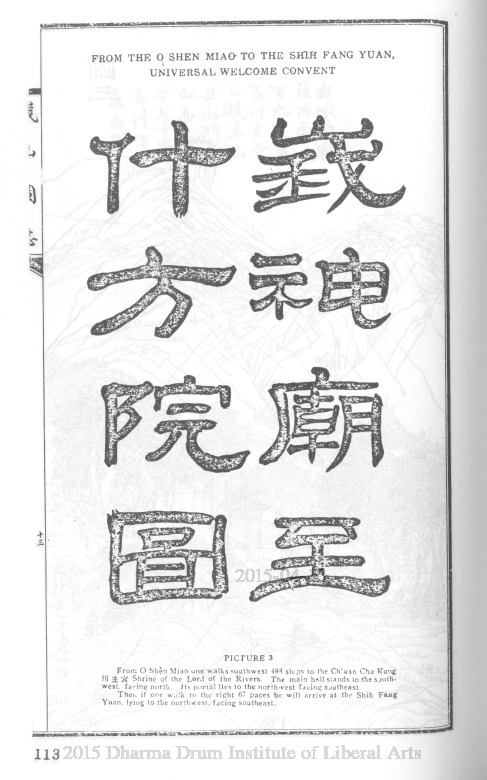 FROM THE O SHEN MIAO TO THE SHIH FANG YUAN,
UNIVERSAL WELCOME CONVENT
峩神廟至
什方院圖
2015-04
PICTURE 3
From O Shên Miao one walks southwest 498 steps to the Ch'uan Chu Kung
川主宮 Shrine of the Lord of the Rivers. The main hall stands to the south-
west, facing north. Its portal lies to the northwest facing southeast.
Then if one walk to the right 67 paces he will arrive at the Shih Fang
Yuan, lying to the northwest, facing southeast.
113 2015 Dharma Drum Institute of Liberal Arts